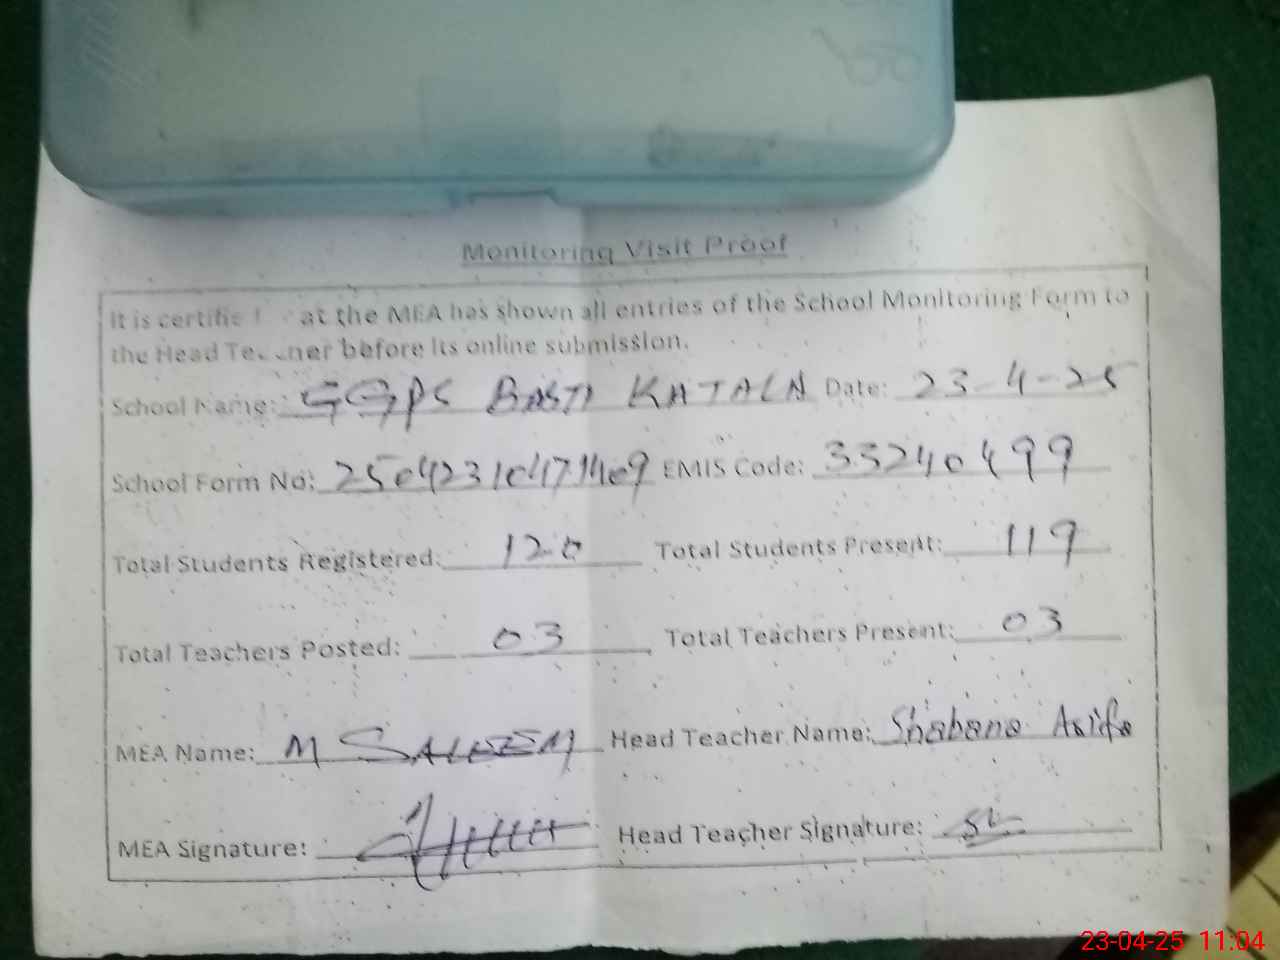 Monitoring Visit Proof
It is certifie at the MEA has shown all entries of the School Monitoring Form to
the Head Teacher before its online submission.
School Name: GGPS BASTI KATALN Date: 23-4-25
School Form No: EMIS Code: 33240499
Total Students Registered: 120 Total Students Present: 119
Total Teachers Posted: 03 Total Teachers Present: 03
MEA Name: M SALEEM Head Teacher Name: Shabana Asifa
MEA Signature: Head Teacher Signature:
23-04-25 11:04